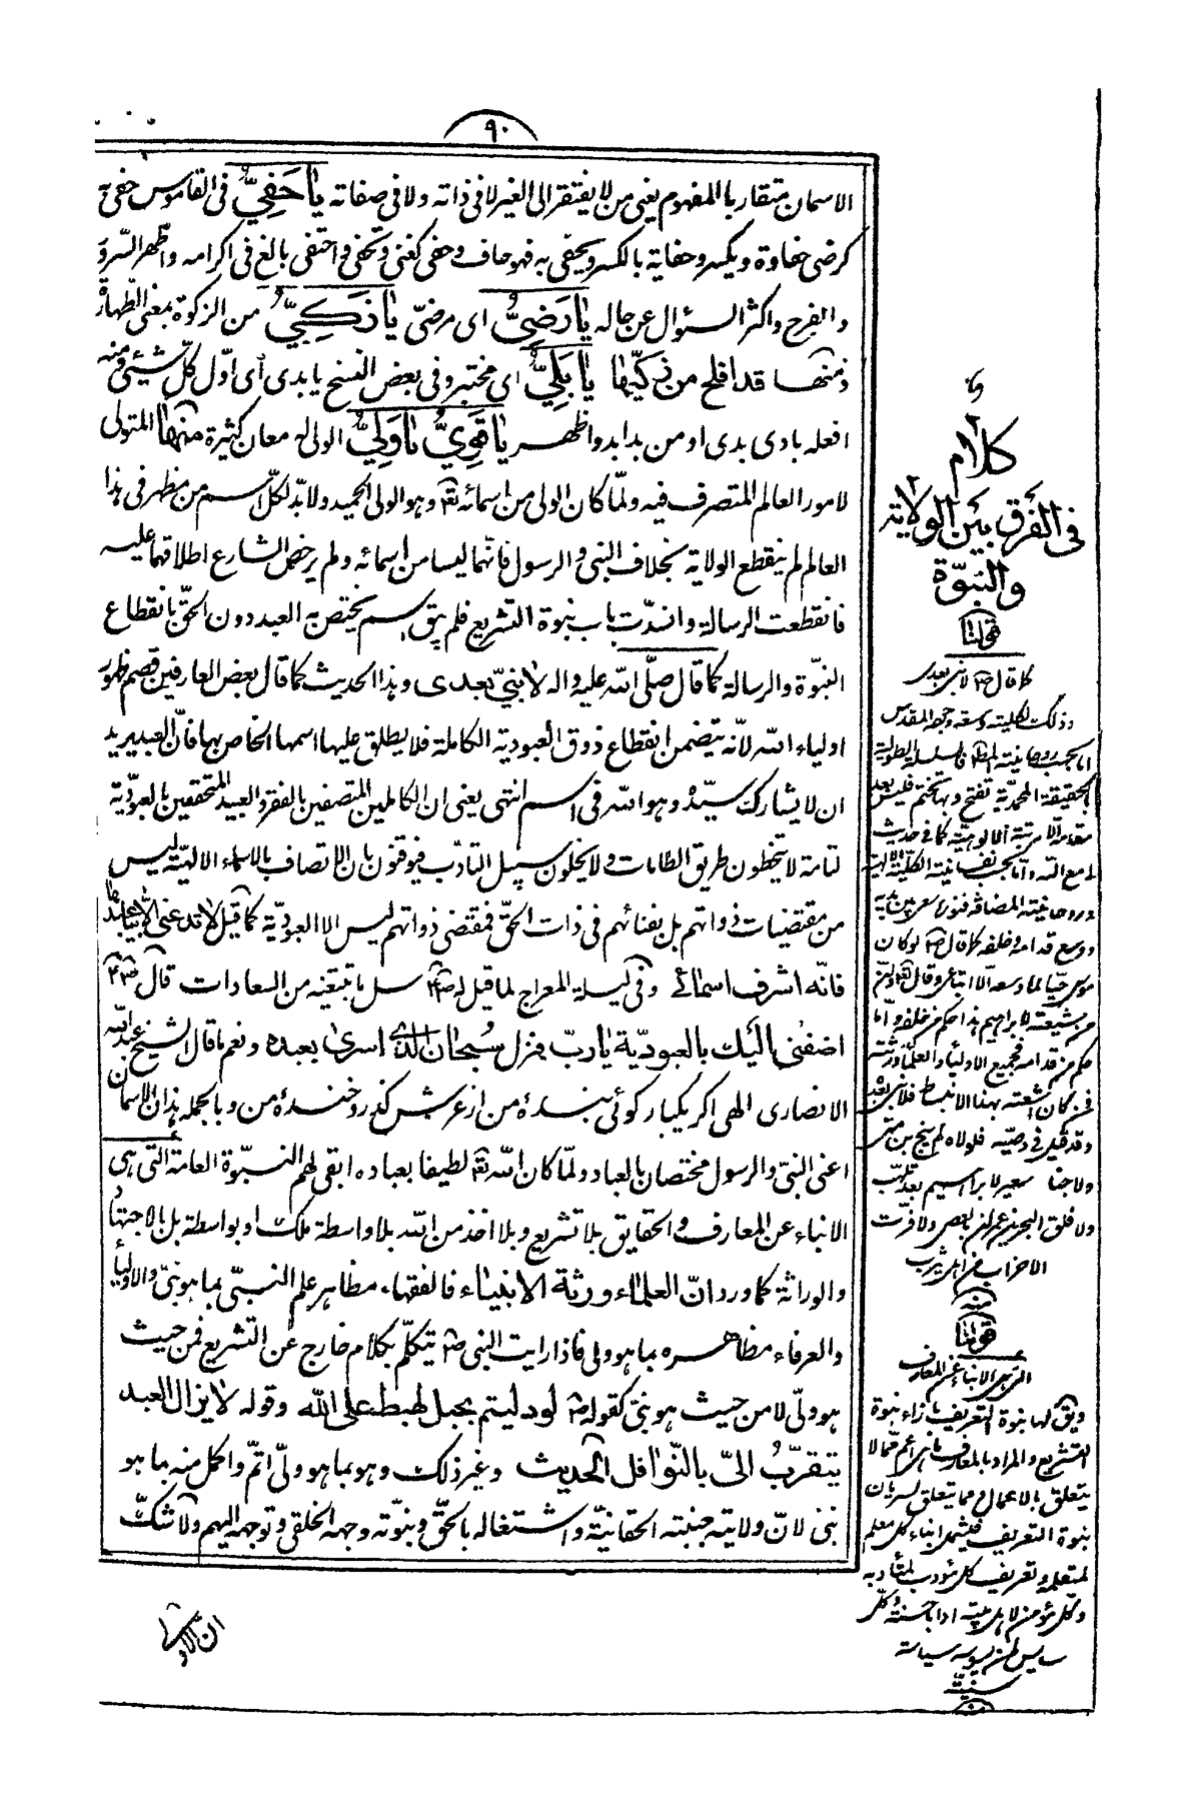 ٩٠
الاسمان متقاربا المفهوم یعنی من لا یفتقر الی الغیر لا فی ذاته ولا فی صفاته یا حَفِیُّ فی القاموس حفی به
کرضی حفاوة ویکسر وحفایة بالکسر ویحفی به فهو حاف وحفی کغنی وتحفی واحتفی بالغ فی اکرامه واظهر السرور
والفرح واکثر السؤال عن حاله یا رَضِیُّ ای مرضیّ یا زَکِیُّ من الزکوة بمعنی الطهارة
ومنها قد افلح من زکّیها یا بَلِیُّ ای مختبر وفی بعض النسخ یا بدی ای اوّل کلّ شیئی ومنه
افعله بادی بدی او من بدا یدو اظهر یا قَوِیُّ یا وَلِیُّ الولی له معان کثیرة منها المتولی
لامور العالم المتصرف فیه ولمّا کان الولی من اسمائه تعالی وهو الولی الحمید ولابدّ لکلّ اسم من مظهر فی هذا
العالم لم ینقطع الولایة بخلاف النبی والرسول فانّهما لیسا من اسمائه ولم یرخص الشارع اطلاقهما علیه
فانقطعت الرسالة وانسدّت باب نبوة التشریع فلم یبق اسم یختص به العبد دون الحقّ بانقطاع
النبوّة والرسالة کما قال صلّی الله علیه واله لا نبیّ بعدی وهذا الحدیث کما قال بعض العارفین قصم ظهور
اولیاء الله لانّه یتضمن انقطاع ذوق العبودیة الکاملة فلا یطلق علیها اسمها الخاص بها فانّ العبد یرید
ان لا یشارک سیّده وهو الله فی اسم انتهی یعنی ان الکاملین المتصفین بالفقر والعبید المتحققین بالعبودیّة
التامة لا یتخطون طریق الطامات ولا یخلون سبیل التادّب فیوقنون بان الاتصاف بالاسماء الالهیّة لیس
من مقتضیات ذواتهم بل بفنائهم فی ذات الحقّ فمقتضی ذواتهم لیس الا العبودیّة کما قیل لا تدعنی الا بیا عبدها
فانّه اشرف اسمائے وفی لیلة المعراج لما قیل له ص سل ما تبتغیه من السعادات قال ص
اضفنی الیک بالعبودیّة یا ربّ فنزل سُبحان الّذی اسری بعبده ونعم ما قال الشیخ عبد الله
الانصاری الهی اکر یکبار کوئی بندهٔ من از عرش کذرد خندهٔ من وبالجمله هذان الاسمان
اعنی النبیّ والرسول مختصان بالعباد ولمّا کان الله تعالی لطیفا بعباده ابقی لهم النبوّة العامة التی هی
الانباء عن المعارف والحقایق بلا تشریع وبلا اخذ من الله بلا واسطة ملک او بواسطة بل بالاجتهاد
والوراثة کما ورد انّ العلماء ورثة الانبیاء فالفقهاء مظاهر علم النبیّ بما هو نبیّ والاولیاء
والعرفاء مظاهره بما هو ولی فاذا رایت النبی ص یتکلّم بکلام خارج عن التشریع فمن حیث
هو ولیّ لا من حیث هو نبیّ کقوله ص لو دلیتم بحبل لهبط علی الله وقوله لا یزال العبد
یتقرّبُ الیّ بالنّوافل الحدیث وغیر ذلک وهو بما هو ولیّ اتمّ واکمل منه بما هو
نبی لانّ ولایته جنبته الحقانیّة واشتغاله بالحقّ ونبوّته وجهه الخلقی وتوجهه الیهم ولا شکّ
ان الاولی
کلام
فی الفرق بین الولایة
والنبوّة
قولنا
کما قال ص لا نبی بعدی
وذلک لکلیته وسعة وجهه المقدس
الحقیقة المحمدیّة تفتح وبها تختم فلیس بعد
مقدمة الا مرتبة الالوهیّة کما فی حدیث
لی مع الله واما بحسب نفسانیته الکلیّة الالهیة
وروحانیته المضافة
ووسع قدامه وخلفه کما قال ص لو کان
موسی حیّا لما وسعه الا اتباعی وقال تعالی وانّ
من شیعته لابراهیم هذا حکم من خلفه وامّا
حکم من قدامه فجمیع الاولیاء والعلماء ورثته
فمن کان اشعته بهذا الانبساط فلا نبی بعده
وقد قیل فی وصیّه فلولاه لم ینج بن متّی
ولا خبا سعیر لابراهیم بعد تلهّب
ولا فلق البحر بن عمران بعصی ولا فرّت
الاحزاب من اهل یثرب
منه
قولنا
التی هی الانباء عن المعارف
ویق لها نبوة التعریف بازاء نبوة
التشریع والمراد بالمعارف ما هی اعم ممّا لا
یتعلق بالاعمال ومما یتعلق لسریان
نبوة التعریف فیشمل انباء کل معلم
لمتعلمه وتعریف کل مؤدب لمتأدبه
وکلّ مؤمن لاهل بیته ادابا حسنة وکلّ
سایس لمن یسوسه سیاسة
سنیّة
منه